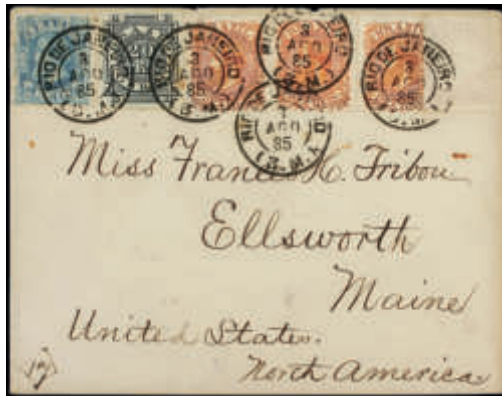 RIO DE JANEIRO 3 AGO 85 (3.M.)
RIO DE JANEIRO 3 AGO 85 (3.M.)
RIO DE JANEIRO 3 AGO 85 (3.M.)
RIO DE JANEIRO 3 AGO 85 (3.M.)
RIO DE 3 AGO 85 (3.M.)
Miss H. Tribou
Ellsworth
Maine
United States.
North America